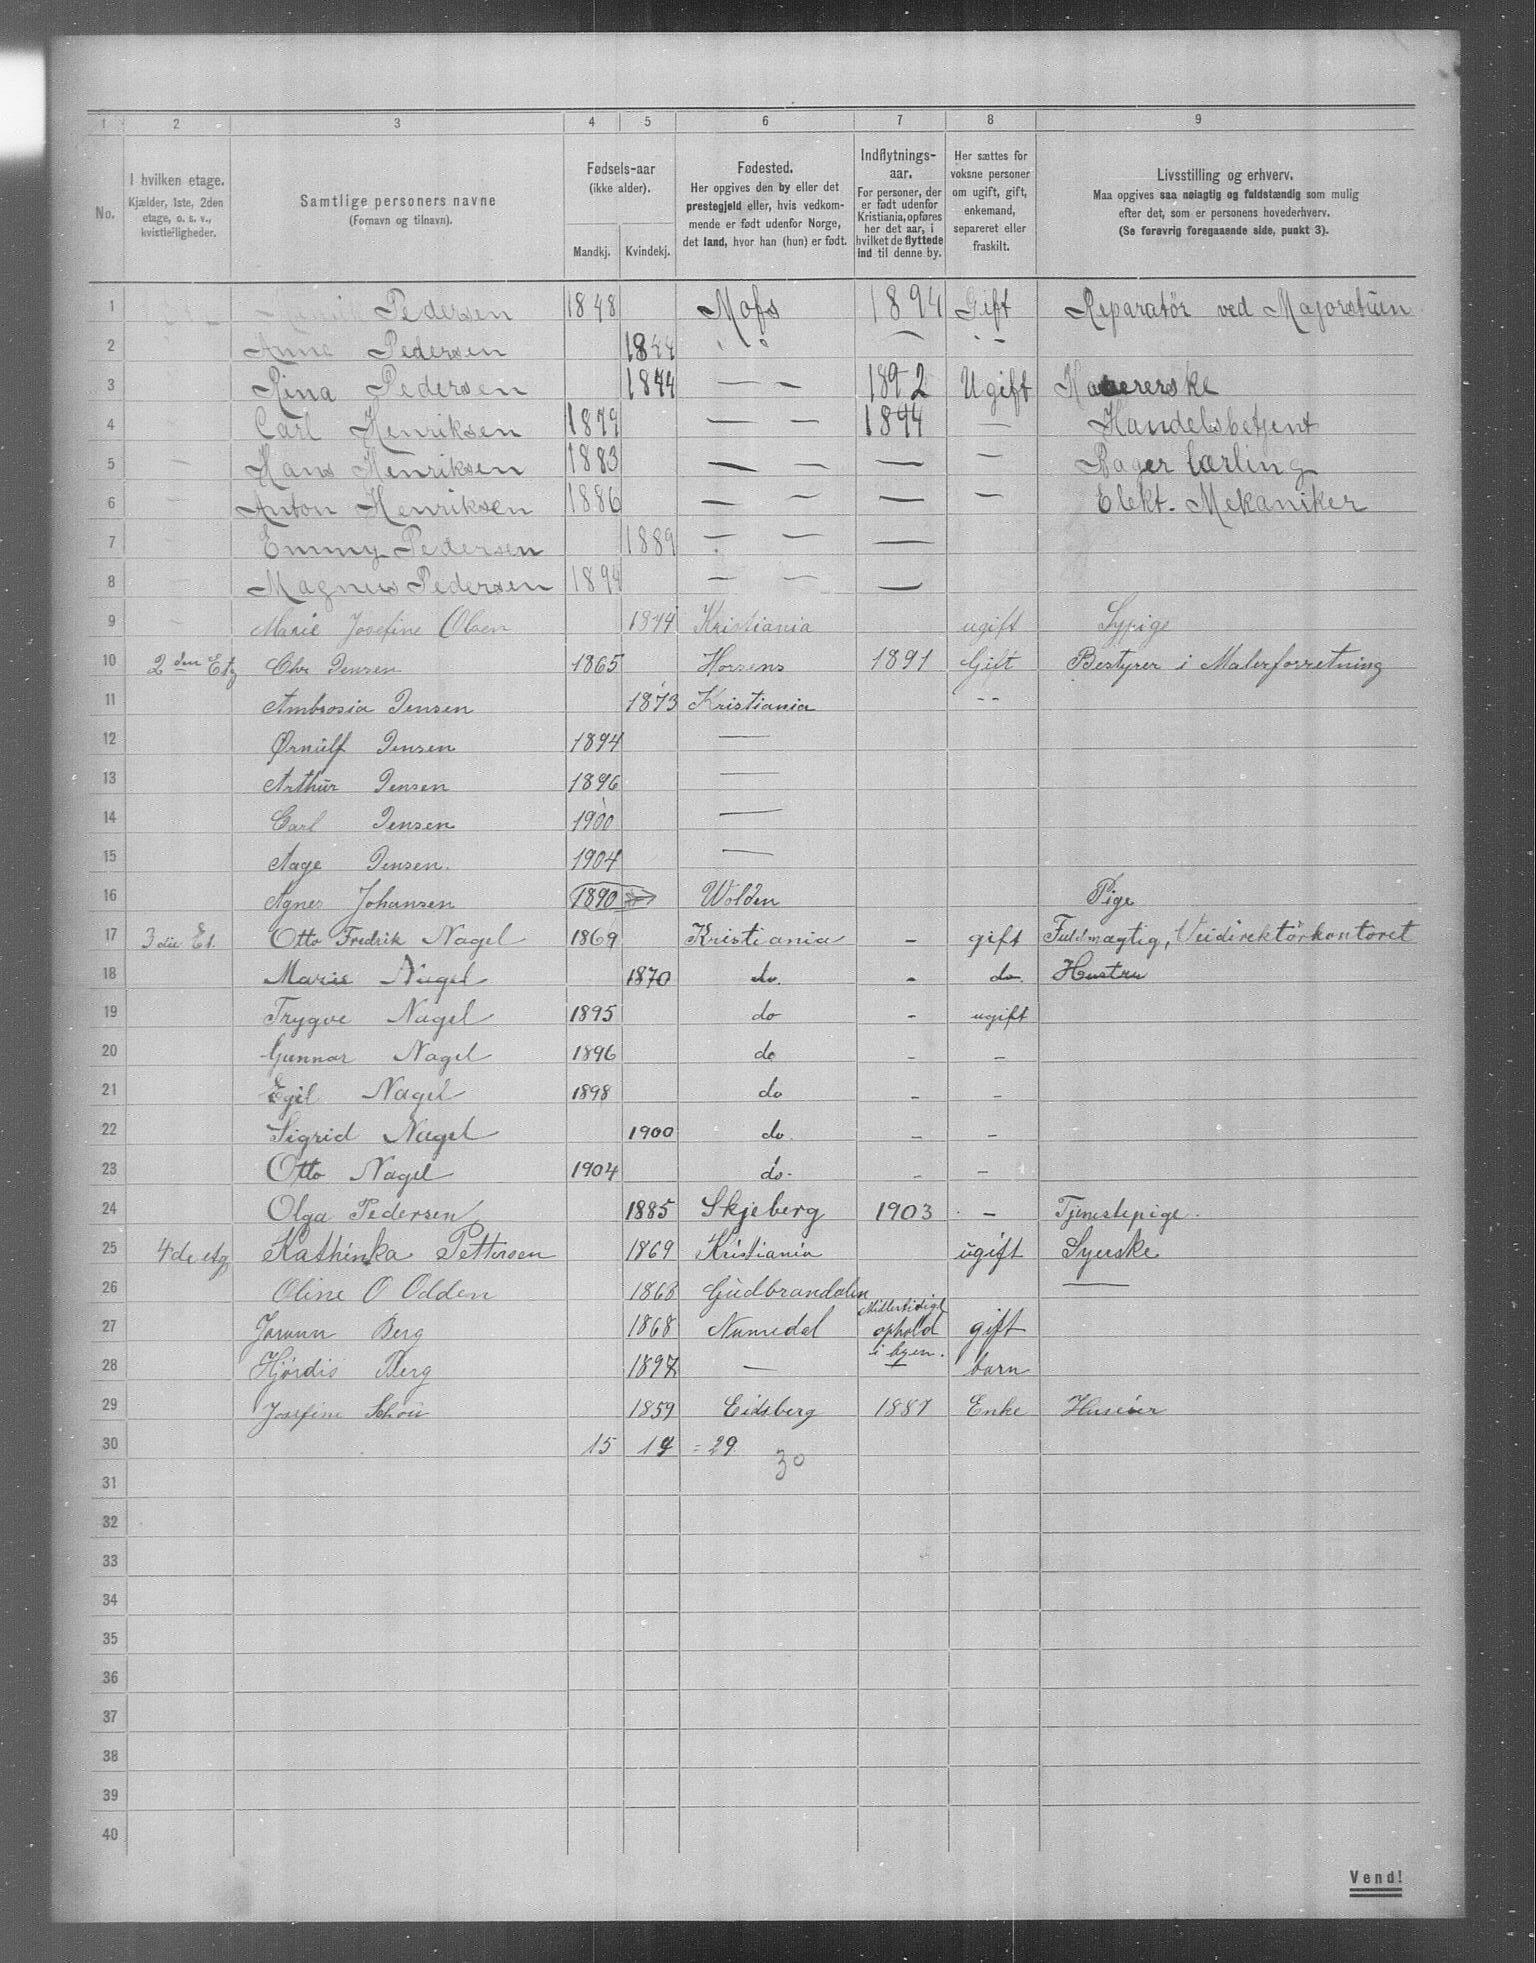 1 2 3 4 5 6 7 8 9
No.
I hvilken etage.
Kjælder, 1ste, 2den
etage, o. s. v.,
kvistleiligheder.
Samtlige personers navne
(Fornavn og tilnavn).
Fødsels-aar
(ikke alder).
Mandkj. Kvindekj.
Fødested.
Her opgives den by eller det
prestegjeld eller, hvis vedkom-
mende er født udenfor Norge,
det land, hvor han (hun) er født.
Indflytnings-
aar.
For personer, der
er født udenfor
Kristiania, opføres
her det aar, i
hvilket de flyttede
ind til denne by.
Her sættes for
voksne personer
om ugift, gift,
enkemand,
separeret eller
fraskilt.
Livsstilling og erhverv.
Maa opgives saa nøiagtig og fuldstændig som mulig
efter det, som er personens hovederhverv.
(Se forøvrig foregaaende side, punkt 3).
1 Pedersen 1848 Mofs 1894 Gift Reparatör ved Majorstuen
2 Anne Pedersen 1844 " " — - -
3 Rina Pedersen 1844 — — 1892 Ugift
4 Carl Henriksen 1879 — — 1894 — Handelsbetjent
5 — Hans Henriksen 1883 — — — — Bager lærling
6 — Anton Henriksen 1886 — — — — Elekt. Mekaniker
7 — Emmy Pedersen 1889 — — —
8 — Magnus Pedersen 1894 — — —
9 — Marie Josefine Olsen 1874 Kristiania ugift Sypige
10 2den Etg Chr Jensen 1865 Horsens 1891 Gift Bestyrer i Malerforretning
11 Ambrosia Jensen 1873 Kristiania - -
12 Ørnulf Jensen 1894 —
13 Arthur Jensen 1896 —
14 Carl Jensen 1900 —
15 Aage Jensen. 1904 —
16 Agnes Johansen 1890 Wolden Pige
17 3die Et. Otto Fredrik Nagel 1869 Kristiania - gift Fuldmægtig, Veidirektörkontoret
18 Marie Nagel 1870 do. - do. Hustru
19 Trygve Nagel 1895 do - ugift
20 Gunnar Nagel 1896 do - -
21 Egil Nagel 1898 do - -
22 Sigrid Nagel 1900 do. - -
23 Otto Nagel 1904 do. - -
24 Olga Pedersen 1885 Skjeberg 1903 - Tjenestepige.
25 4de etg Kathinka Pettersen 1869 Kristiania ugift Syerske
26 Oline O Odden 1868 Gudbrandalen —
27 Jorunn Berg 1868 Numedal Midlertidigt ophold i byen. gift
28 Hjördis Berg 1897 — — barn
29 Josefine Schou 1859 Eidsberg 1887 Enke Huseier
30 15 14 = 29
30
31
32
33
34
35
36
37
38
39
40
Vend!